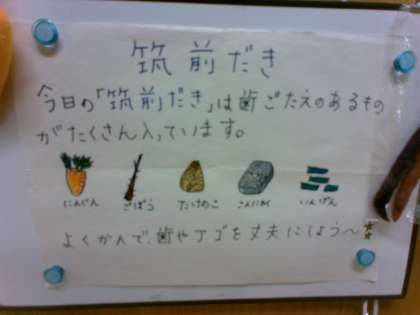 筑前だき
今日の「筑前だき」は歯ごたえのあるもの
がたくさん入っています。
にんじん ごぼう たけのこ こんにゃく いんげん
よくかんで、歯やアゴを丈夫にしよう〜